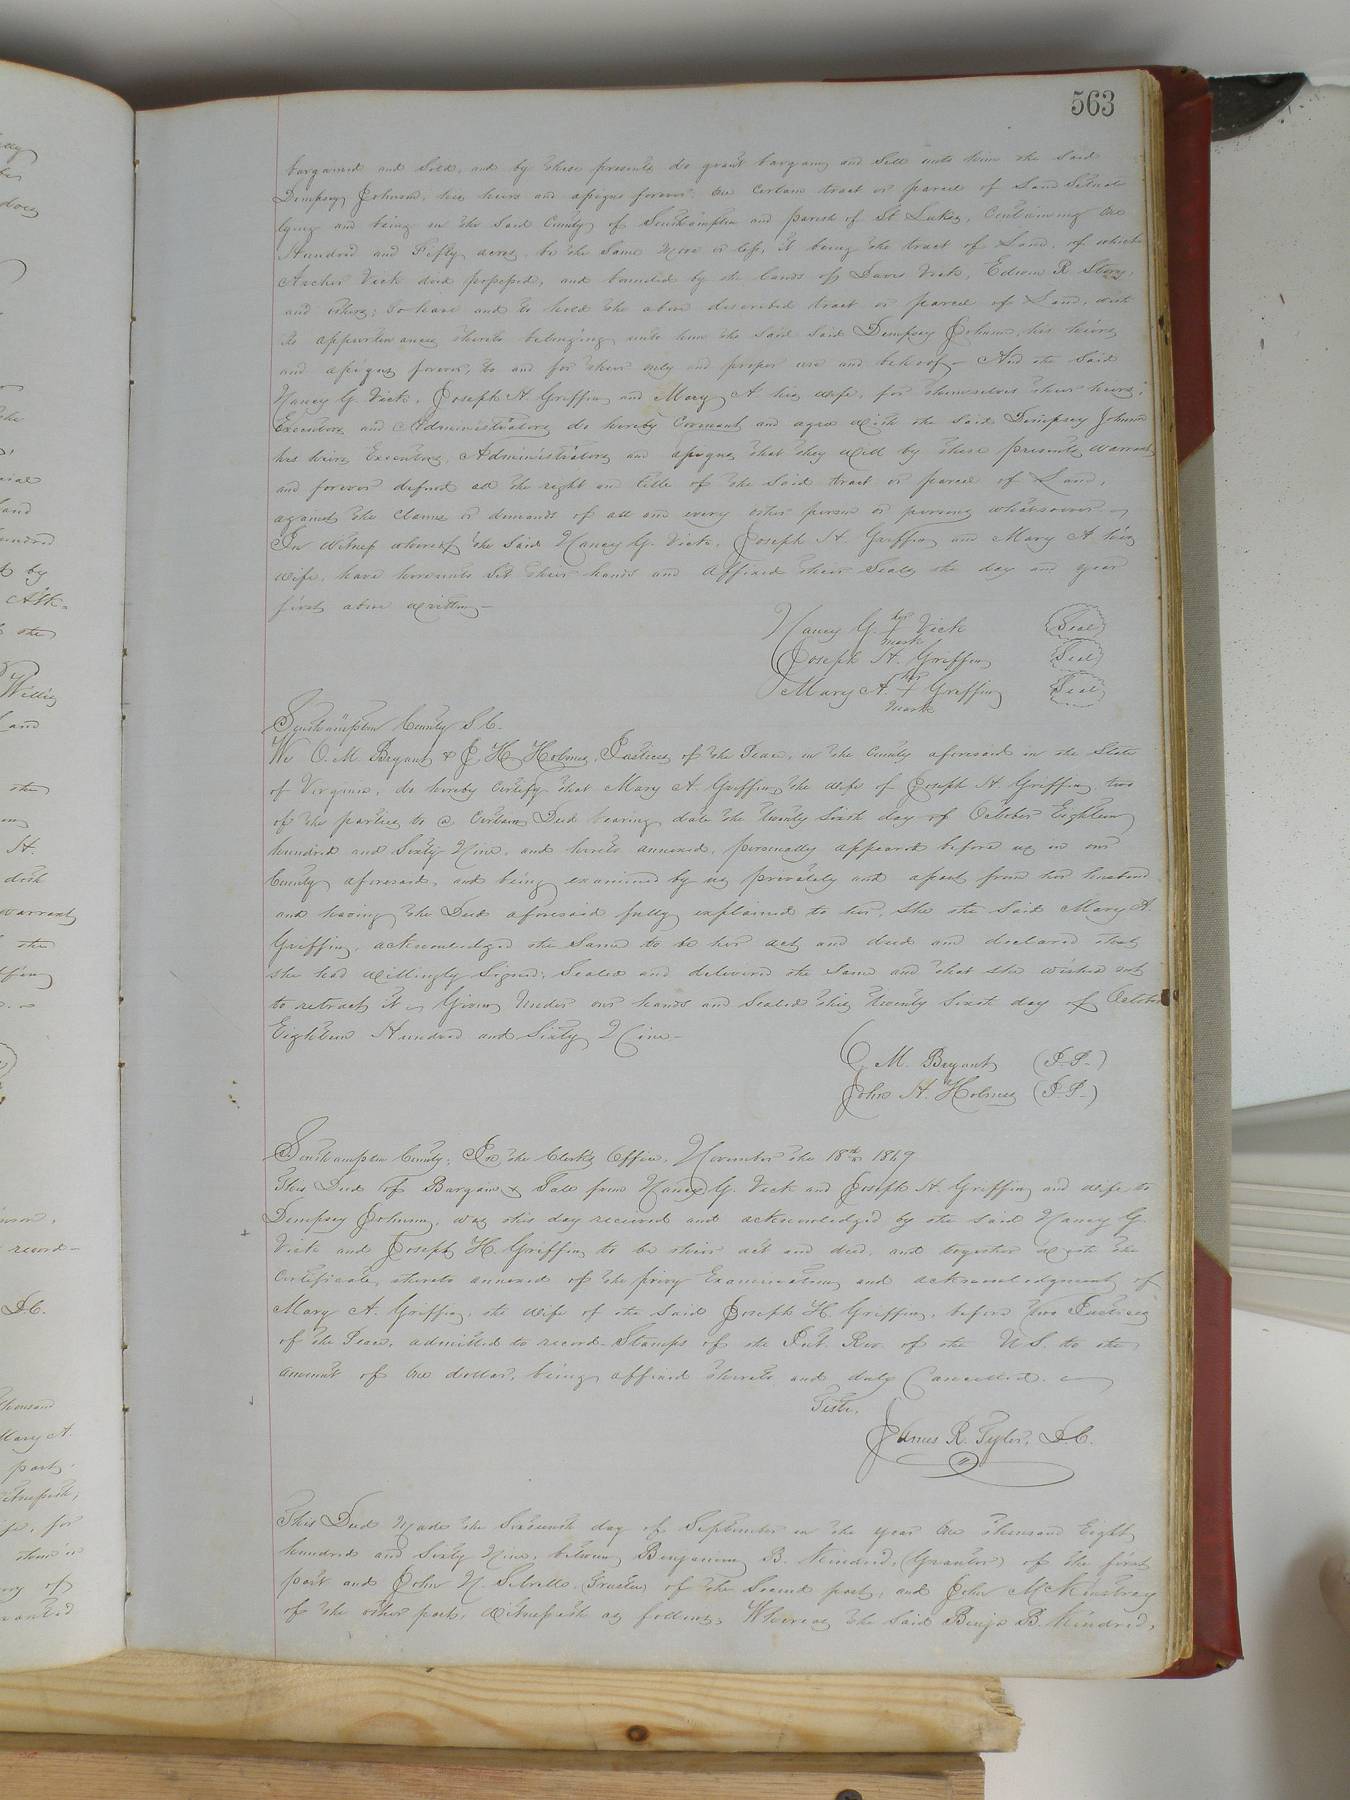 563
bargained and Sold, and by these presents do grant bargain and Sell unto him the Said
Dempsey Johnson, his heirs and assigns forever, One Certain tract or parcel of Land Situate
lying and being in the Said County of Southampton and parish of St Lukes, Containing One
Hundred and Fifty acres, be the Same More or less, it being the tract of Land, of which
Archer Vick died possessed, and bounded by the lands of Davis Vick, Edwin R Story,
and others; To have and to hold the above described tract or parcel of Land, with
its appurtenances thereto belonging unto him the Said Said Dempsey Johnson, his heirs
and assigns forever, to and for their only and proper use and behoof. And the Said
Nancy G. Vick, Joseph H. Griffin and Mary A. his wife, for themselves their heirs,
Executors and Administrators do hereby Covenant and agree with the Said Dempsey Johnson
his heirs Executors, Administrators and assigns that they will by these presents warrant
and forever defend all the right and title of the Said tract or parcel of Land,
against the Claims or demands of all and every other person or persons whatsoever
In Witness whereof the Said Nancy G. Vick, Joseph H. Griffin and Mary A his
wife, have hereunto Set their hands and affixed their Seals the day and year
first above written
Nancy G. her + mark Vick (Seal)
Joseph H. Griffin (Seal)
Mary A. her + mark Griffin (Seal)
Southampton County S.C.
We O. M. Bryant & J. H. Holmes, Justices of the Peace, in the County aforesaid in the State
of Virginia, do hereby Certify that Mary A. Griffin, the wife of Joseph H. Griffin two
of the parties to a Certain Deed bearing date the twenty Sixth day of October Eighteen
hundred and Sixty Nine, and hereto annexed, personally appeared before us in our
County aforesaid, and being examined by us privately and apart from her husband
and having the Deed aforesaid fully explained to her, She the Said Mary A.
Griffin, acknowledged the Same to be her act and deed and declared that
She had willingly Signed, Sealed and delivered the Same and that She wished not
to retract it. Given Under our hands and Sealed this twenty Sixth day of October
Eighteen Hundred and Sixty Nine
O. M. Bryant (J.P.)
John H. Holmes (J.P.)
Southampton County, In the Clerk's Office, November the 18th 1869
This Deed of Bargain & Sale from Nancy G. Vick and Joseph H. Griffin and wife to
Dempsey Johnson, was this day received and acknowledged by the Said Nancy G.
Vick and Joseph H. Griffin to be their act and deed, and together with the
Certificate thereto annexed of the privy Examination and acknowledgment of
Mary A. Griffin, the wife of the Said Joseph H. Griffin, before two Justices
of the Peace, admitted to record. Stamps of the Int. Rev. of the U.S. to the
amount of One dollar, being affixed thereto and duly Cancelled.
Teste,
James R. Tyler, D.C.
This Deed Made the Sixteenth day of September in the year One thousand Eight
hundred and Sixty Nine, between Benjamin B. Kindred, (Grantor) of the first
part and John N. (Trustee) of the Second part, and John McKinstray
of the other part, witnesseth as follows, Whereas the Said Benja B. Kindred,